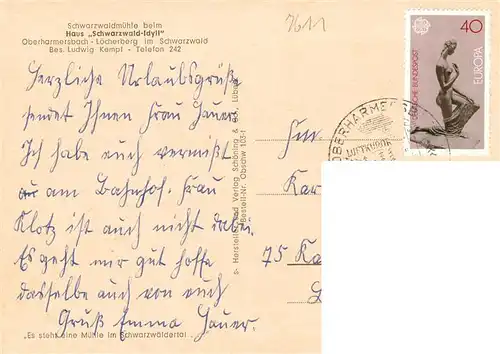 7611
Schwarzwaldmühle beim
Haus „Schwarzwald-Idyll"
Oberharmersbach - Löcherberg im Schwarzwald
Bes. Ludwig Kempf - Telefon 242
Herzliche Urlaubsgrüße
sendet Ihnen Frau Hauer.
Ich habe euch vermißt
am Bahnhof. Frau
Klotz ist auch nicht dabei.
Es geht mir gut hoffe
dasselbe auch von euch
Gruß Emma Hauer.
„Es steht eine Mühle im Schwarzwäldertal
Herstellung und Verlag Schöning &
Bestell-Nr. Obschw 103-1
Kar
75 Ka
OBERHARMERS
LUFTKURORT
40
EUROPA
DEUTSCHE BUNDESPOST
CEPT